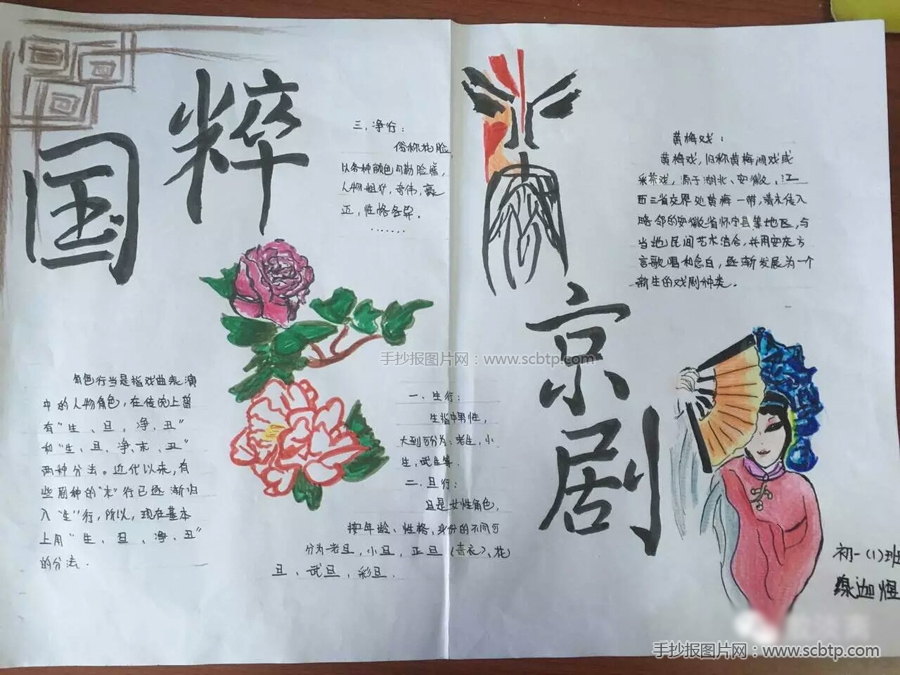 国粹
三、净行：
俗称花脸
以各种颜色勾勒脸谱，
人物粗犷、奇伟、豪
迈，性格各异
......
角色行当是指戏曲表演
中的人物角色，在传统上曾
有“生、旦、净、丑”
和“生、旦、净、末、丑”
两种分法。近代以来，有
些剧种的“末”行已逐渐归
入“生”行，所以，现在基本
上用“生、旦、净、丑”
的分法．
一、生行：
生指男性，
大致可分为：老生，小
生，武生等．
二、旦行：
旦是女性角色，
按年龄、性格、身份的不同可
分为老旦，小旦，正旦（青衣）、花
旦、武旦，彩旦．
京剧
黄梅戏：
黄梅戏，旧称黄梅调或
采茶戏，源于湖北、安徽、江
西三省交界处黄梅一带，清末传入
毗邻的安徽省怀宁县等地区，与
当地民间艺术结合，并用安庆方
言歌唱和念白，逐渐发展为一个
新生的戏剧种类．
初一（1）班
手抄报图片网：www.scbtp.com
手抄报图片网：www.scbtp.com